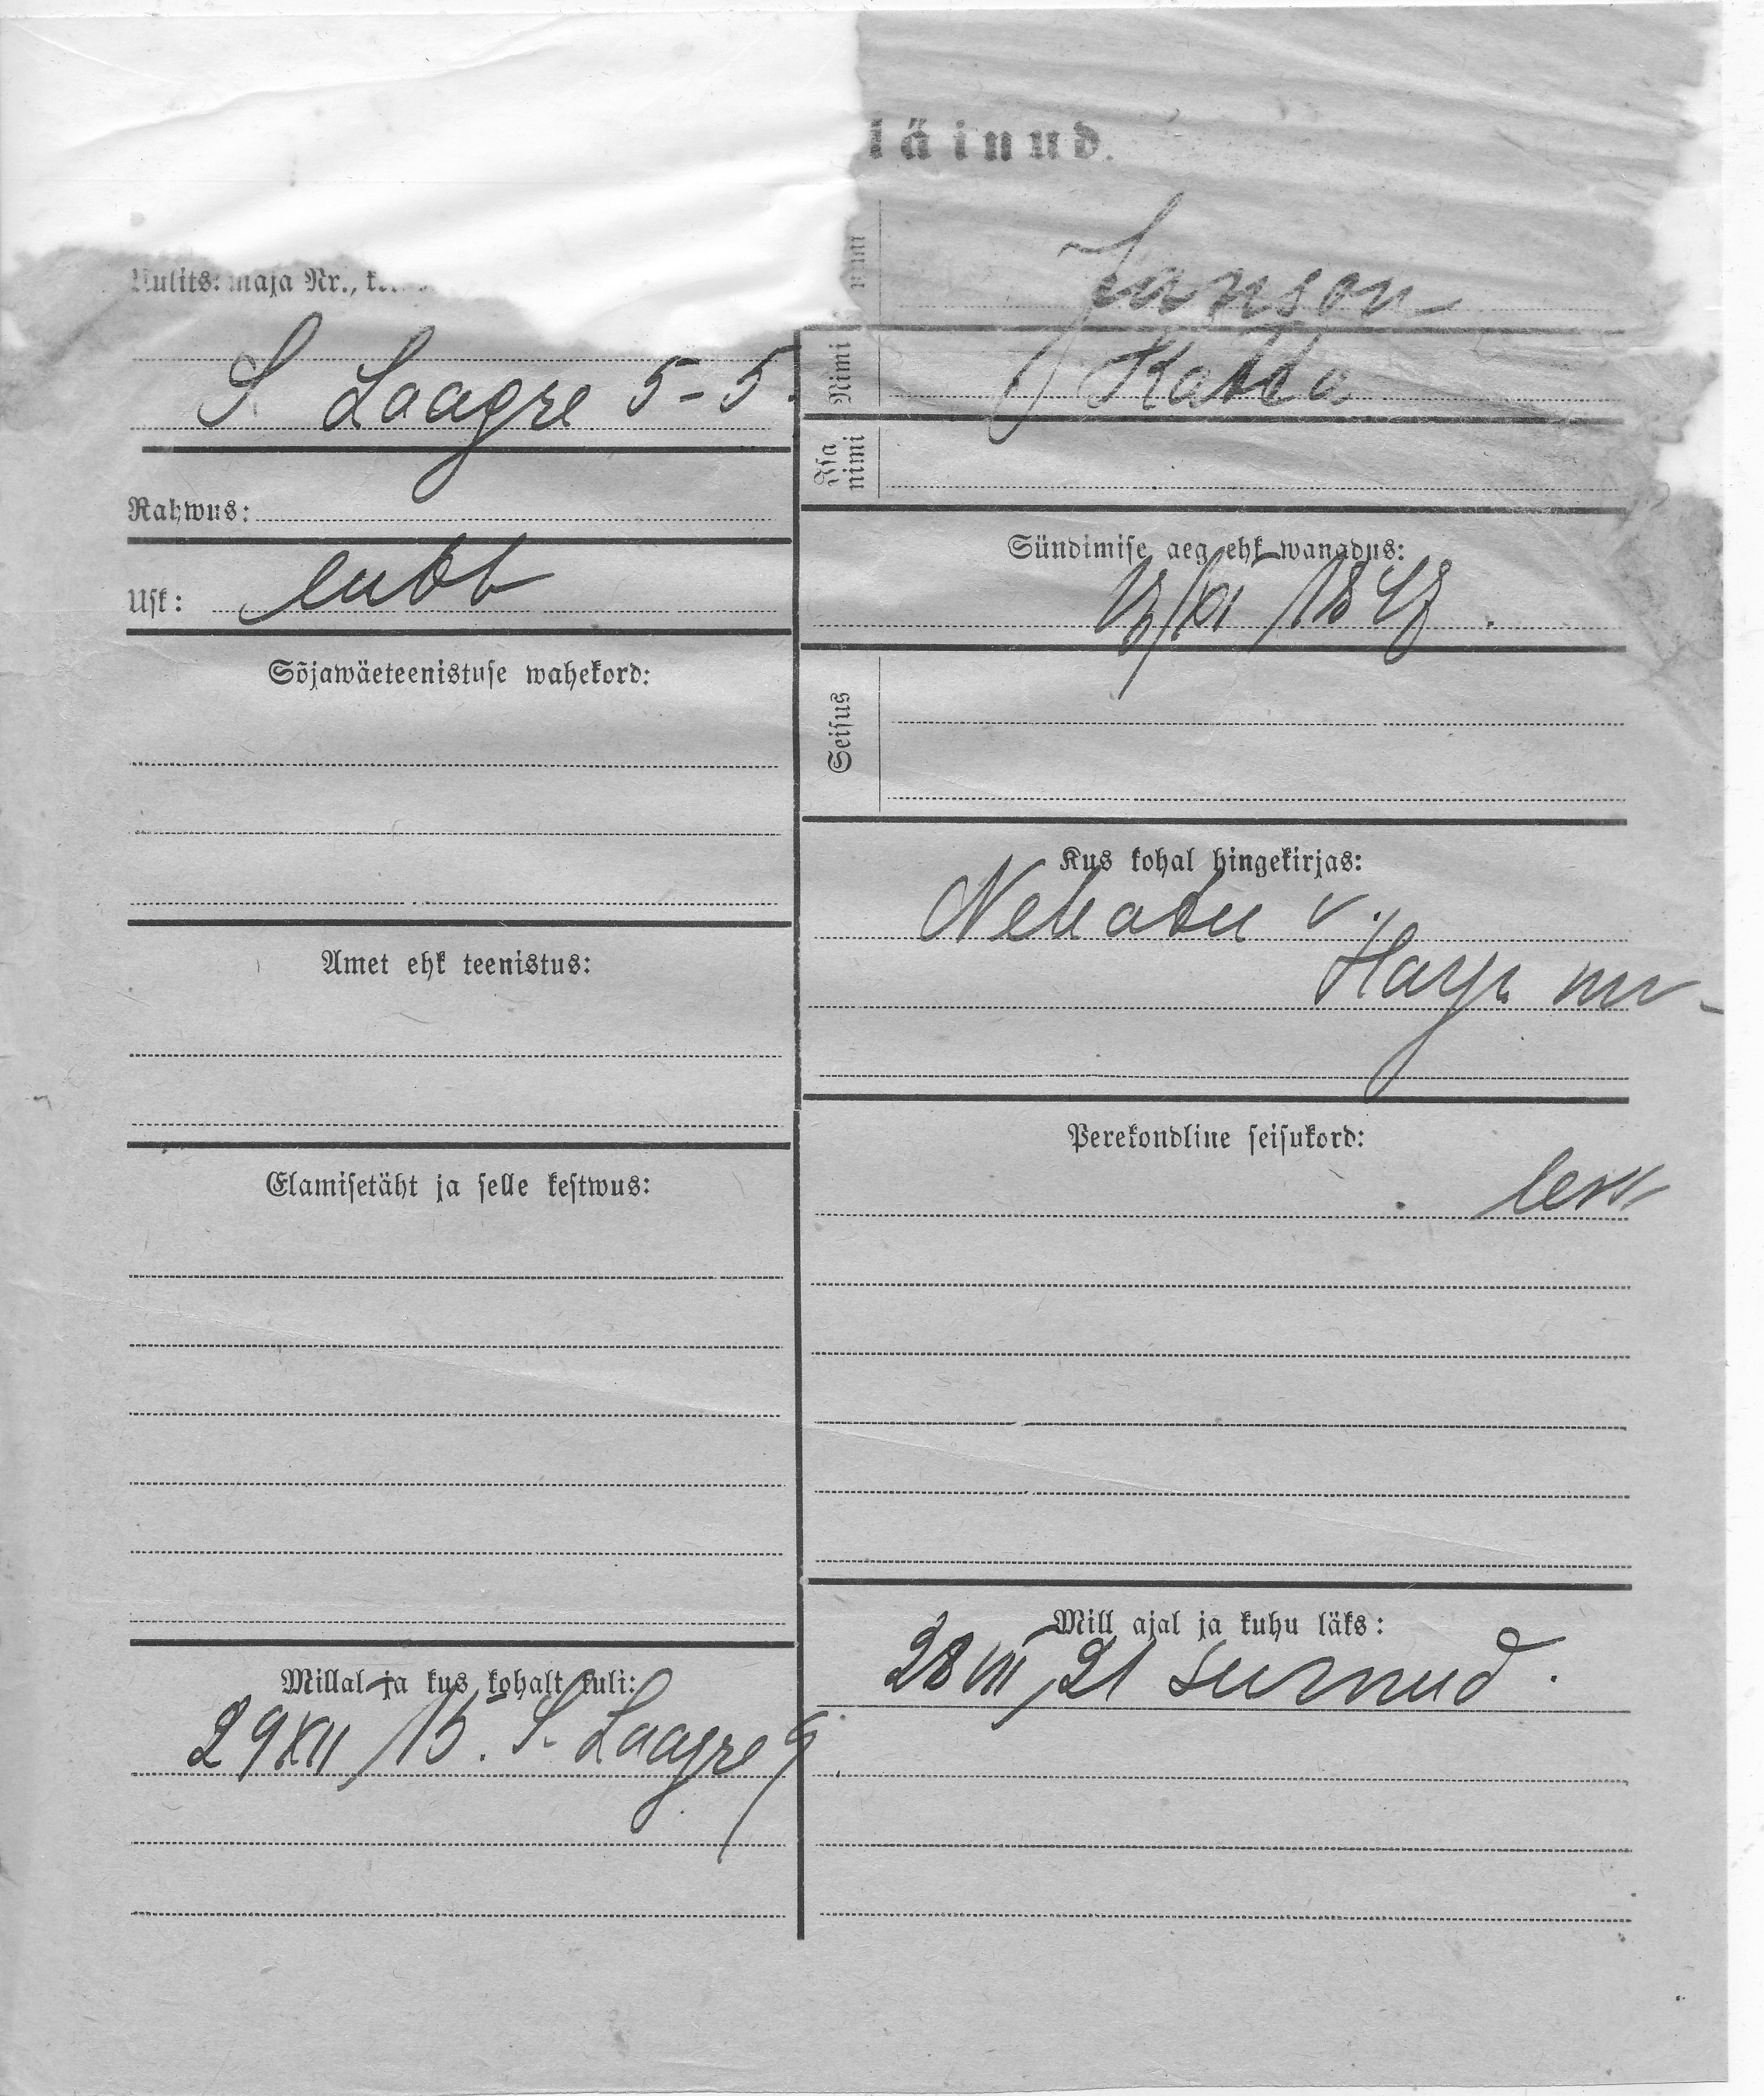 läinud.
Uulits: maja Nr.,
S Laagre 5-5.
Rahwus:
Usk: luth
Sõjawäeteenistuse wahekord:
Amet ehk teenistus:
Elamisetäht ja selle kestwus:
Millal ja kus kohalt tuli:
29 XII 15. S. Laagre 9
Janson
Nimi
Isa
nimi
Sündimise aeg ehk wanadus:
Seisus
Kus kohal hingekirjas:
Nehatu v.
Harju m
Perekondline seisukord:
lesk
Mill ajal ja kuhu läks:
28 VII 21 surnud.